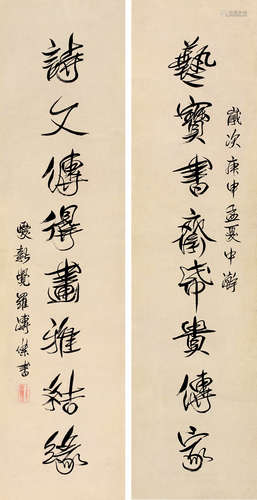 歲次庚申孟夏中澣
藝寶書齋希貴傳家
詩文傳得畫雅結緣
愛新覺羅溥傑書